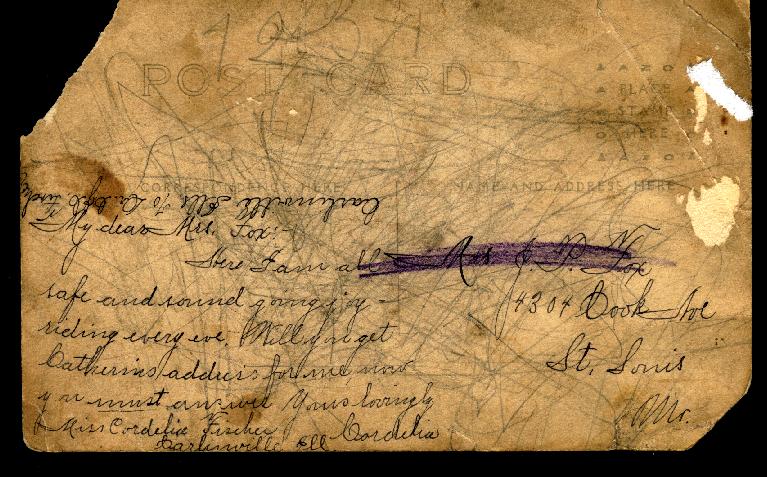 1937
POST CARD
PLACE
STAMP
HERE
CORRESPONDENCE HERE
NAME AND ADDRESS HERE
Carlinville Ills
My dear Mrs. Fox:-
Here I am all
safe and sound going joy-
riding every eve. Will you get
Catherins address for me, now
you must answer Yours lovingly
Cordelia
Miss Cordelia Fischer
Carlinville Ill.
Mrs J. P. Fox
4304 Cook Ave
St. Louis
Mo.